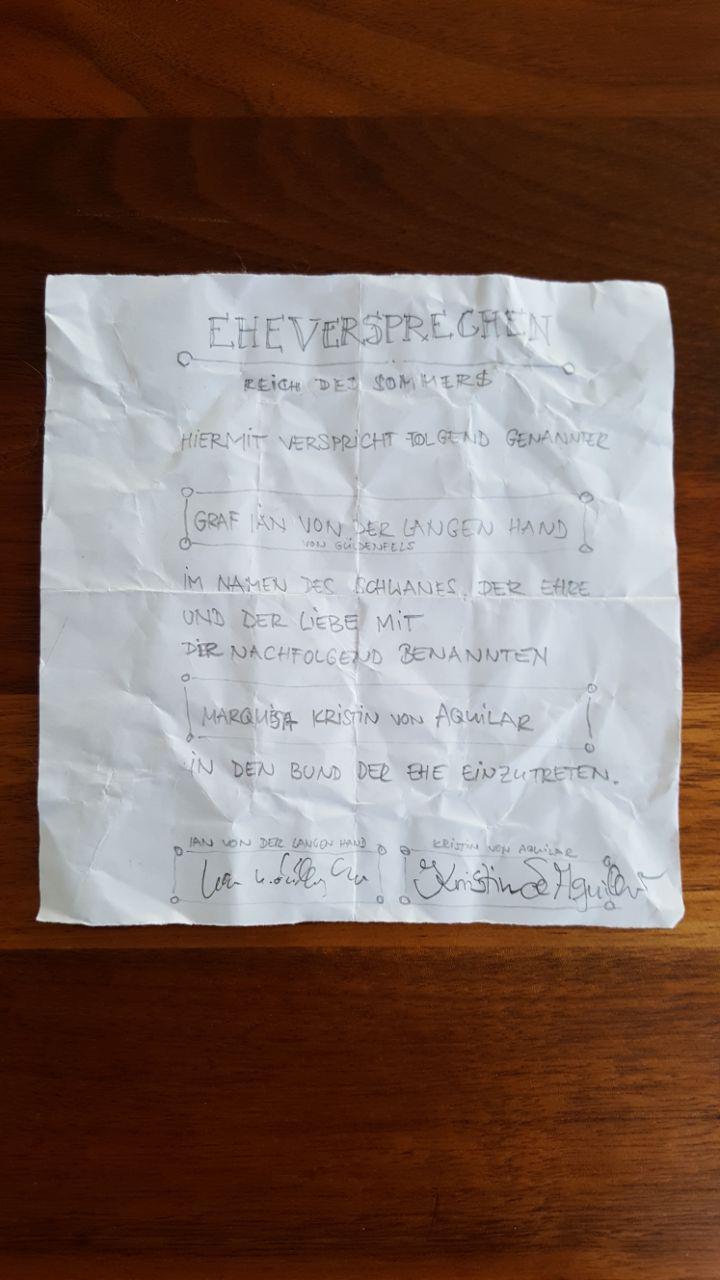 EHEVERSPRECHEN
REICH DES SOMMERS
HIERMIT VERSPRICHT FOLGEND GENANNTER
GRAF IAN VON DER LANGEN HAND
VON GÜLDENFELS
IM NAMEN DES SCHWANES, DER EHRE
UND DER LIEBE MIT
DER NACHFOLGEND BENANNTEN
MARQUESA KRISTIN VON AQUILAR
IN DEN BUND DER EHE EINZUTRETEN.
IAN VON DER LANGEN HAND
KRISTIN VON AQUILAR
Kristin de Aguilar